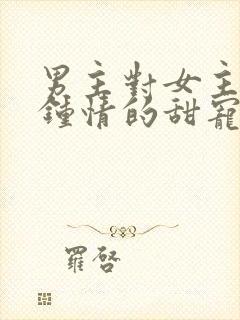 男主對女主
鍾情的甜寵
羅啓